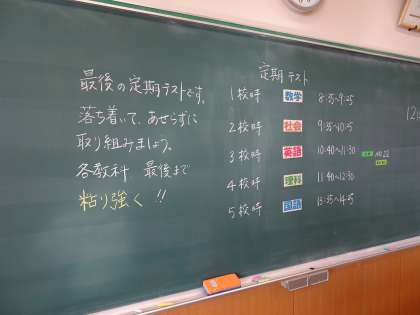 最後の定期テストです。
落ち着いて、あせらずに
取り組みましょう。
各教科 最後まで
粘り強く!!
定期テスト
1校時 数学 8:35~9:25
2校時 社会 9:35~10:25
3校時 英語 10:40~11:30
4校時 理科 11:40~12:30
5校時 国語 13:35~14:25